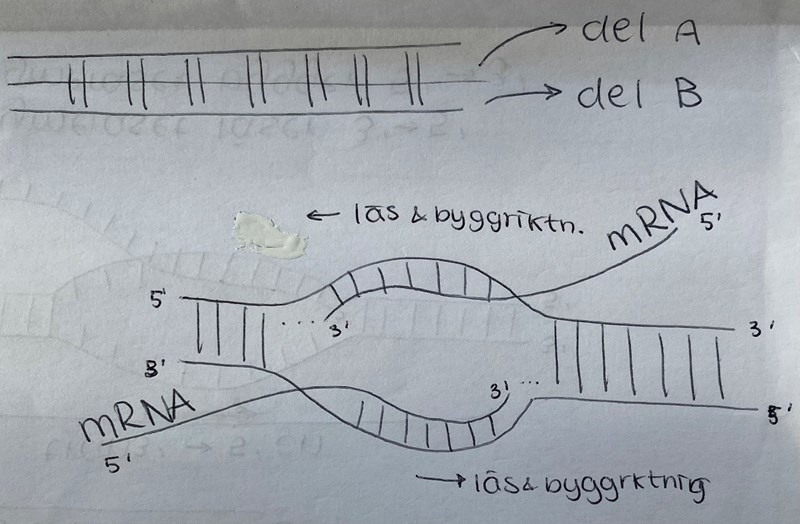 del A
del B
← läs & byggriktn.
mRNA
5'
5'
3'
3'
3'
3'
5'
mRNA
5'
→ läs & byggrktnig